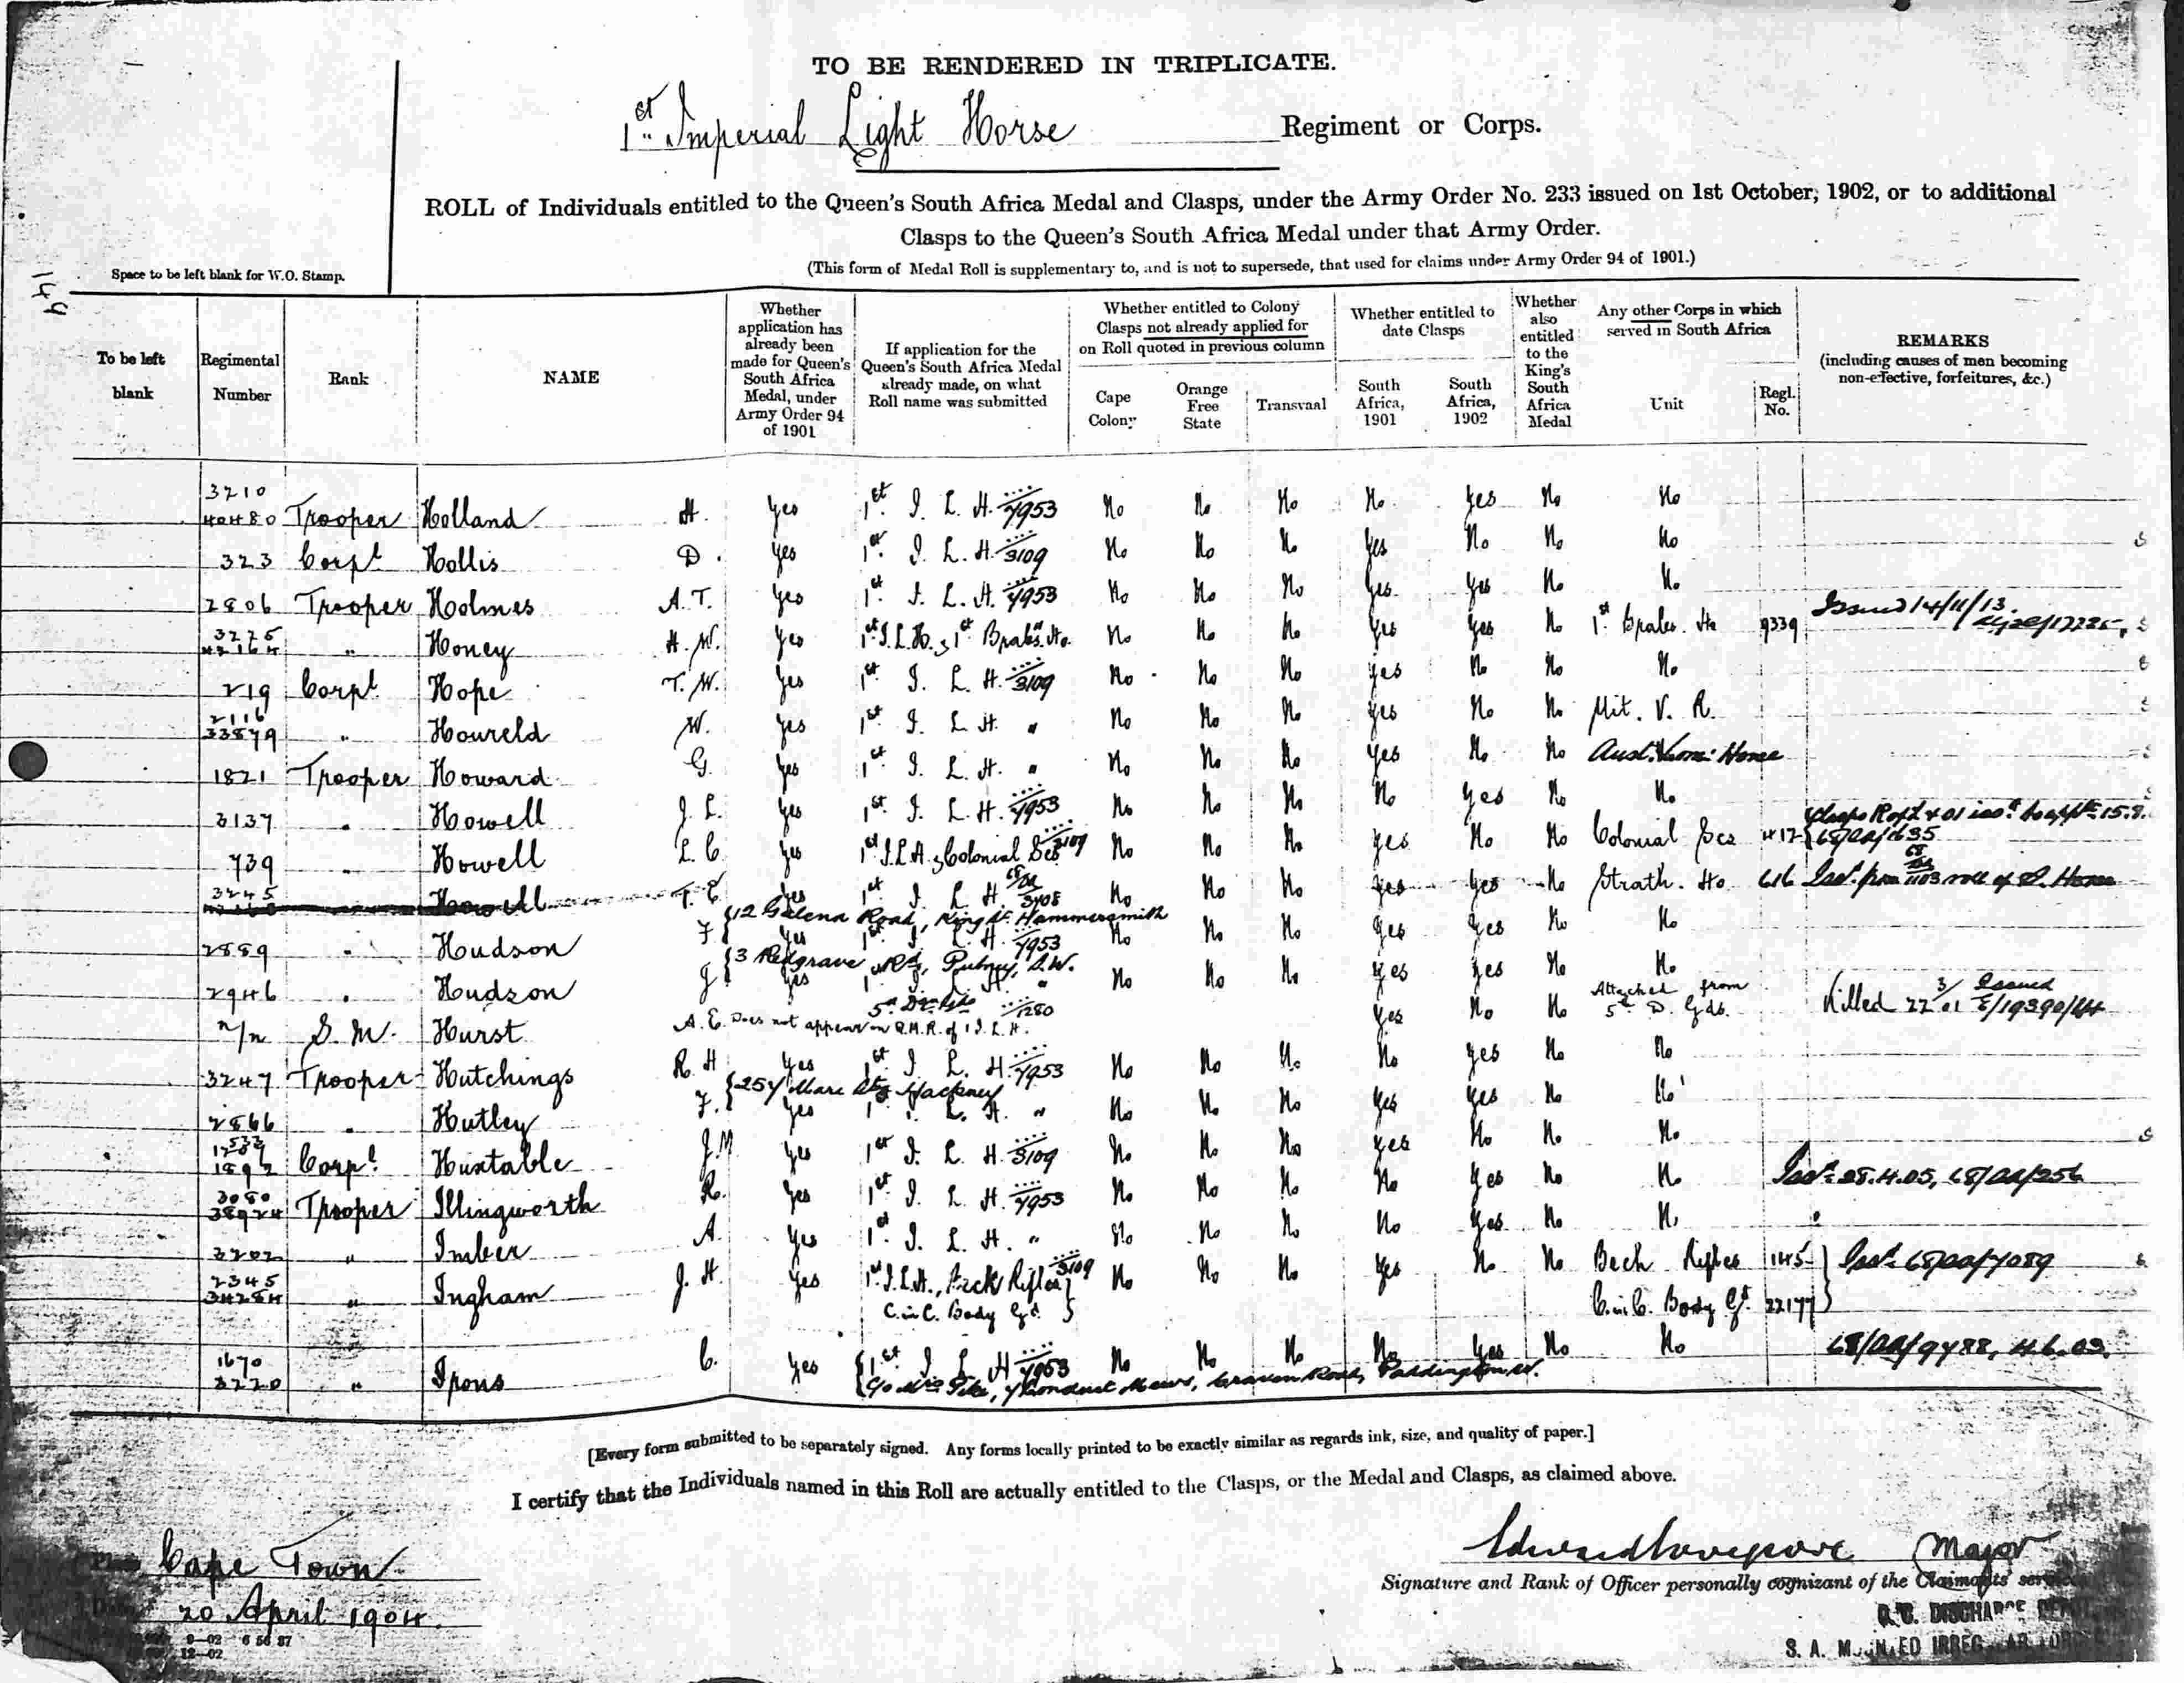 TO BE RENDERED IN TRIPLICATE.
1st Imperial Light Horse Regiment or Corps.
ROLL of Individuals entitled to the Queen's South Africa Medal and Clasps, under the Army Order No. 233 issued on 1st October, 1902, or to additional
Clasps to the Queen's South Africa Medal under that Army Order.
(This form of Medal Roll is supplementary to, and is not to supersede, that used for claims under Army Order 94 of 1901.)
Space to be left blank for W.O. Stamp.
149
To be left blank
Regimental Number
Rank
NAME
Whether application has already been made for Queen's South Africa Medal, under Army Order 94 of 1901
If application for the Queen's South Africa Medal already made, on what Roll name was submitted
Whether entitled to Colony Clasps not already applied for on Roll quoted in previous column
Cape Colony
Orange Free State
Transvaal
Whether entitled to date Clasps
South Africa, 1901
South Africa, 1902
Whether also entitled to the King's South Africa Medal
Any other Corps in which served in South Africa
Unit
Regl. No.
REMARKS
(including causes of men becoming non-effective, forfeitures, &c.)
3210
40480 Trooper Holland H. Yes 1st I. L. H. 4953 No No No No Yes No No
323 Corpl Hollis D. Yes 1st I. L. H. 3109 No No No Yes No No No
2806 Trooper Holmes A. T. Yes 1st I. L. H. 4953 No No No Yes Yes No No
3275
42164 " Honey H. W. Yes 1st I. L. H. & 1st Brab. Ho. No No No Yes Yes No 1st Brab. Ho 9339 Issued 14/11/13.
219 Corpl Hope T. W. Yes 1st I. L. H. 3109 No No No Yes No No No
2116
33879 " Houreld W. Yes 1st I. L. H. " No No No Yes No No Mit. V. R.
1821 Trooper Howard G. Yes 1st I. L. H. " No No No Yes No No Aust. Horse
3137 " Howell J. L. Yes 1st I. L. H. 4953 No No No No Yes No No
739 " Howell L. C. Yes 1st I. L. H. & Colonial Scs 3109 No No No Yes No No Colonial Scs 417 68/AA/635
3245
Howell T. E. Yes 1st I. L. H. 3408 No No No Yes Yes No Strath. Ho 616 Issd. from 1103 roll of S. Horse
{12 Galena Road, King St. Hammersmith
2889 " Hudson F. Yes 1st I. L. H. 4953 No No No Yes Yes No No
{3 Redgrave Rd, Putney, S.W.
2946 " Hudson J. Yes 1st I. L. H. " No No No Yes Yes No No
n/n S. M. Hurst A. E. Does not appear on Q.M.R. of 1 I. L. H. 1280 Yes No No Attached from 5th D. Gds. Killed 22/3/01 Issued E/19390/44
3247 Trooper Hutchings R. H Yes 1st I. L. H. 4953 No No No No Yes No No
{257 Mare St Hackney
2866 " Hutley F. Yes 1st I. L. H. " No No No Yes Yes No No
1892 Corpl. Huxtable J. M Yes 1st I. L. H. 3109 No No No Yes No No No
3080
38924 Trooper Illingworth R. Yes 1st I. L. H. 4953 No No No No Yes No No Issd. 28.4.05, 68/AA/256
3202 " Imber A. Yes 1st I. L. H. " No No No No Yes No No
2345
34284 " Ingham J. H. Yes 1st I.L.H., Bech Rifles 3109 No No No Yes No No Bech. Rifles 1145 Issd. 68/AA/4089
C. in C. Body Gd. C. in C. Body Gd. 22177
1670
3220 " Irons C. Yes 1st I. L. H 4953 No No No No Yes No No 68/AA/9488, 4.6.03.
c/o Mrs Pike, 7 Conduit Mews, Craven Road, Paddington W.
[Every form submitted to be separately signed. Any forms locally printed to be exactly similar as regards ink, size, and quality of paper.]
I certify that the Individuals named in this Roll are actually entitled to the Clasps, or the Medal and Clasps, as claimed above.
Place Cape Town
Date 20 April 1904.
Major
Signature and Rank of Officer personally cognizant of the Claimants' service
O. C. DISCHARGE DEPOT
S. A. MOUNTED IRREGULAR FORCES
9—02 6 56 87
12—02